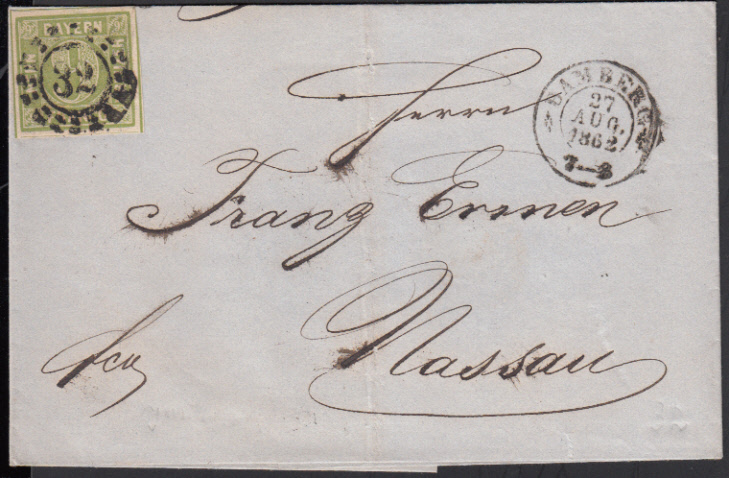 BAYERN
32
BAMBERG
27
AUG.
1862
Herrn
Franz Ermen
Nassau
fco